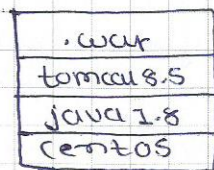 .war
tomcat 8.5
java 1.8
centos